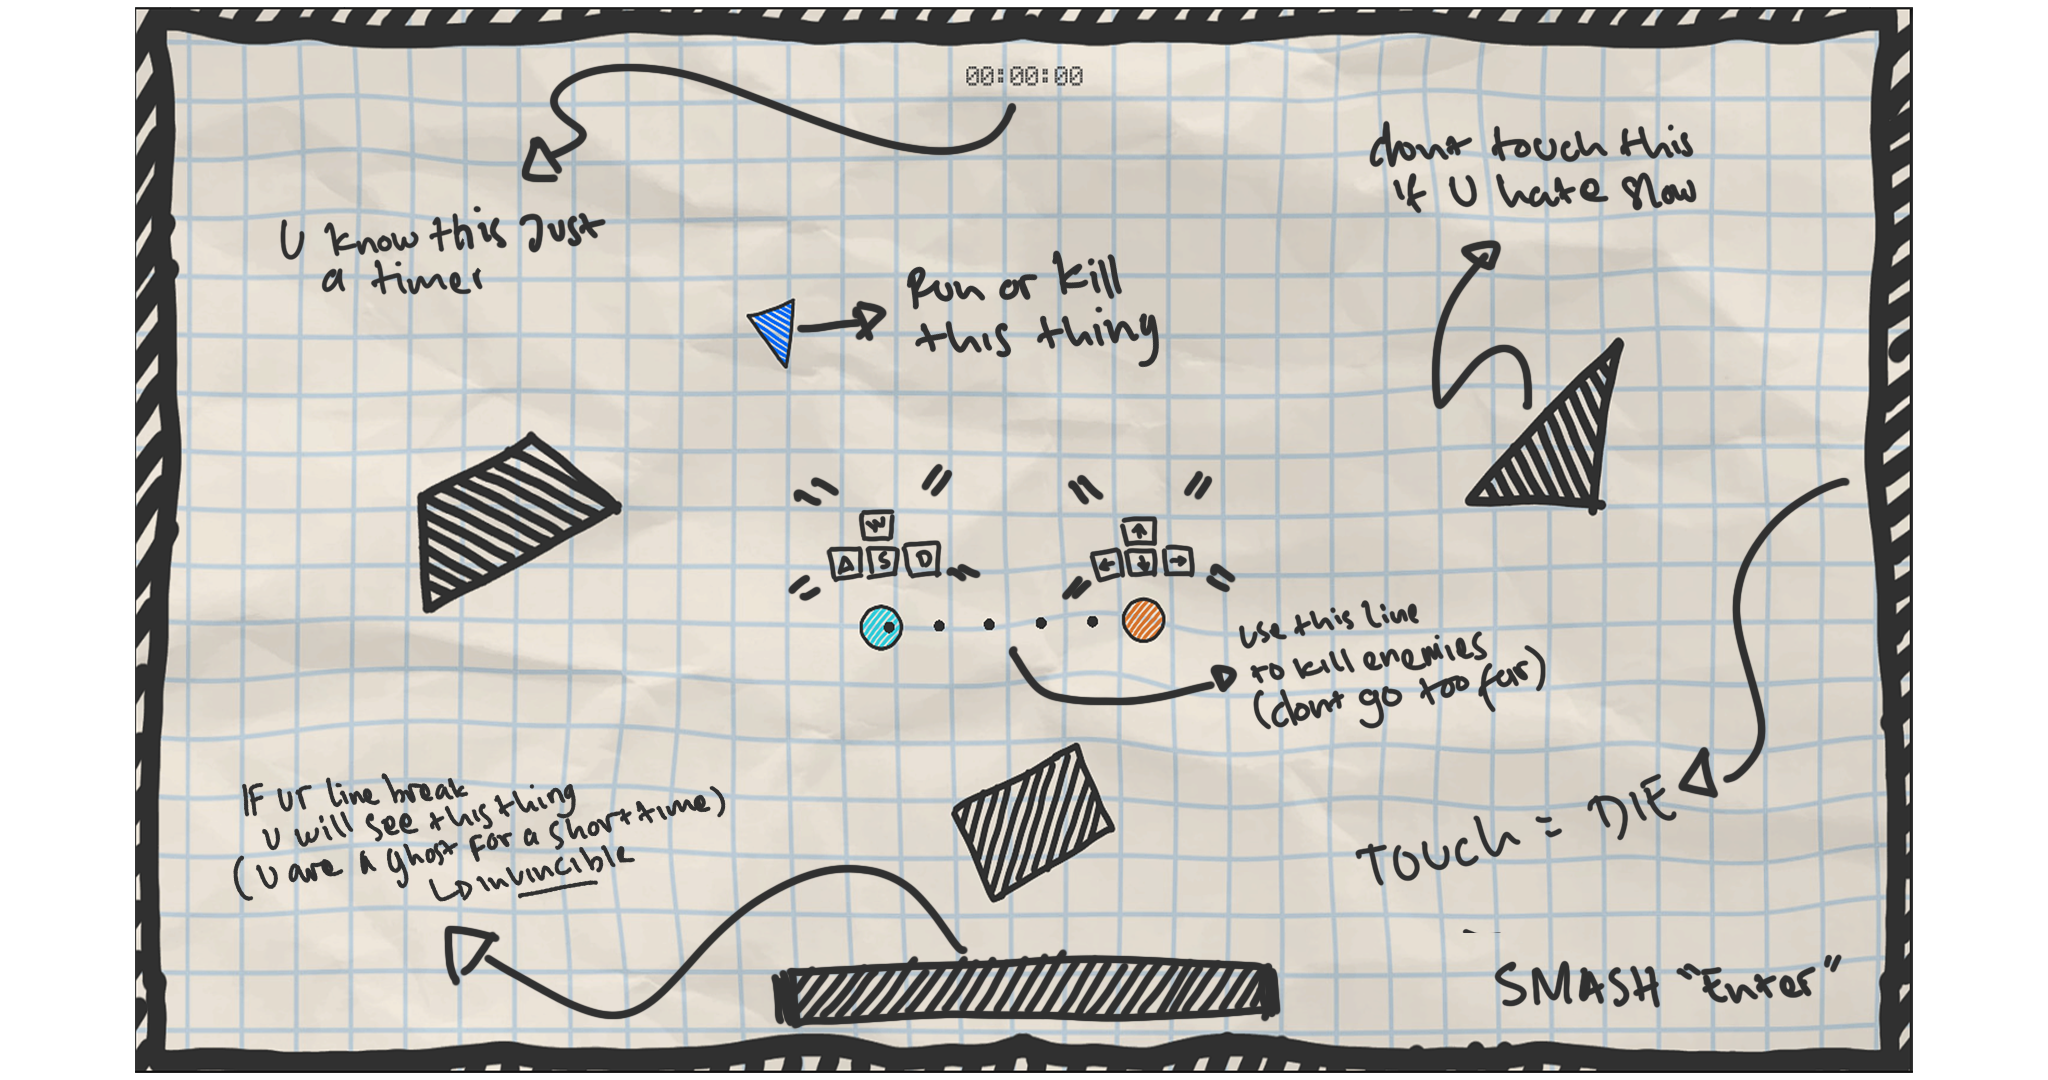 00:00:00
U know this Just
a timer
dont touch this
if U hate slow
Run or kill
this thing
W
A S D
↑
← ↓ →
use this line
to kill enemies
(dont go too far)
IF ur line break
U will see this thing
(U are a ghost for a short time)
↳ invincible
TOUCH = DIE
SMASH "Enter"